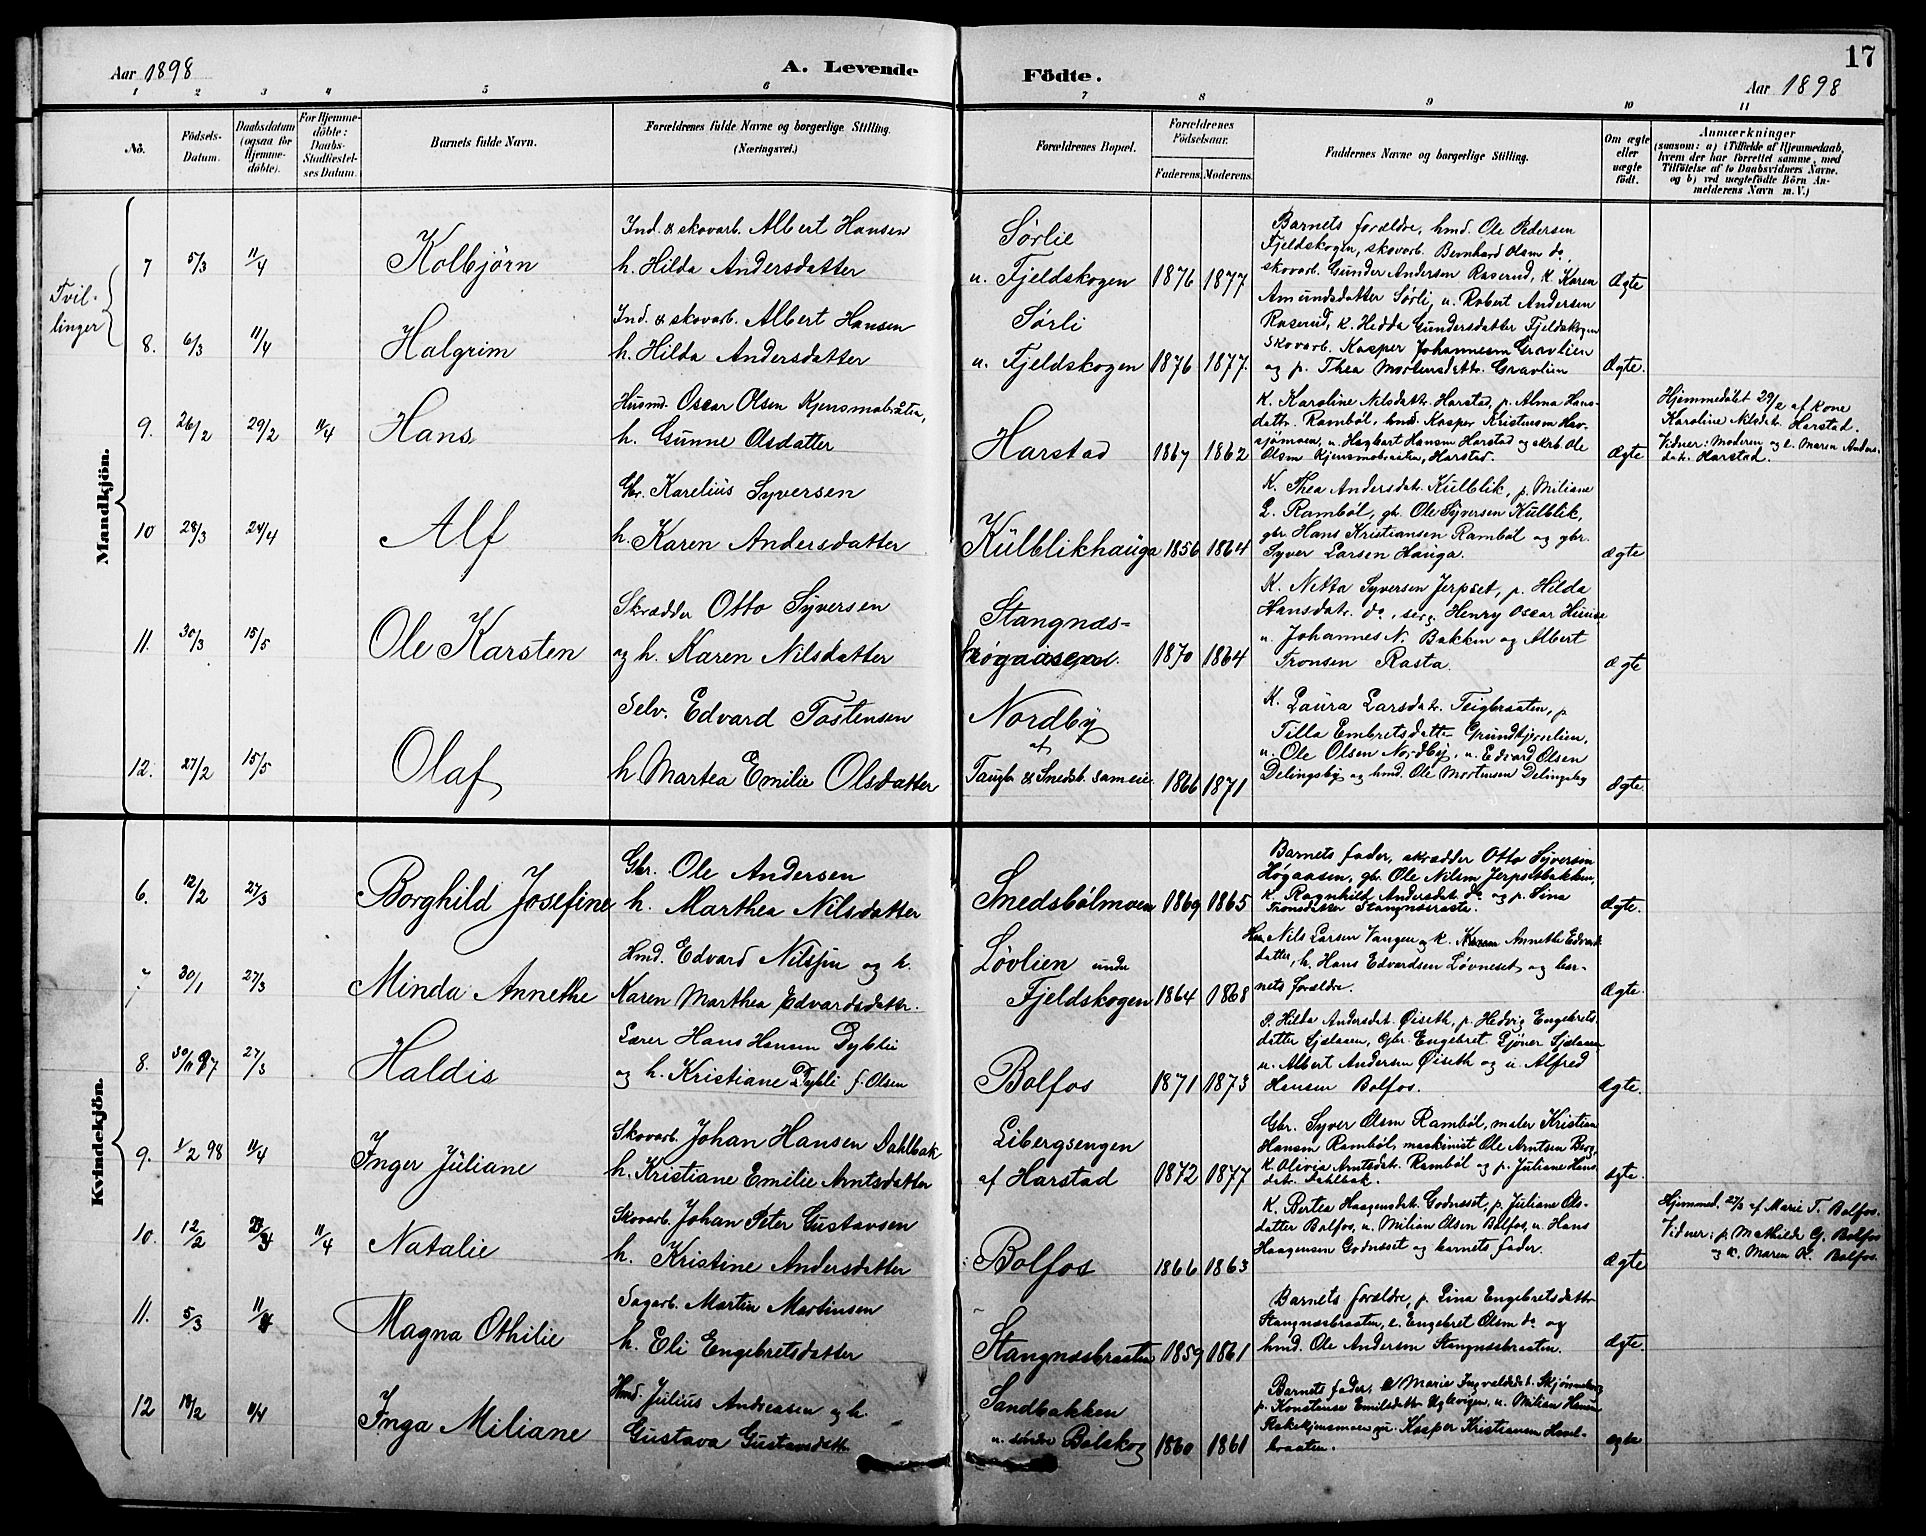 17
Aar 1898
A. Levende
Födte.
Aar 1898
1 2 3 4 5 6 7 8 9 10 11
No.
Födsels-
Datum.
Daabsdatum
(ogsaa for
Hjemme-
döbte).
For Hjemme-
döbte:
Daabs-
Stadfæstel-
ses Datum.
Barnets fulde Navn.
Forældrenes fulde Navne og borgerlige Stilling.
(Næringsvei.)
Forældrenes Bopæl.
Forældrenes
Födselsaar.
Faderens. Moderens.
Faddernes Navne og borgerlige Stilling.
Om ægte
eller
uægte
födt.
Anmærkninger
(saasom: a) i Tilfælde af Hjemmedaab,
hvem der har forrettet samme, med
Tilföielse af to Daabsvidners Navne.
og b) ved uægtefödte Börn An-
melderens Navn m. V.)
Mandkjön.
Tvil-
linger
7 5/3 11/4 Kolbjörn
Ind. & skovarb. Albert Hansen
h. Hilda Andersdatter
Sørlie
u. Fjeldskogen 1876 1877
Barnets forældre, hmd. Ole Pedersen
Fjeldskogen, skovarb. Bernhard Olsen do,
skovarb. Gunder Andersen Raserud, k. Karen
Amundsdatter Sørli, u. Robert Andersen
Ægte
8. 6/3 11/4 Halgrim
Ind. & skovarb. Albert Hansen
h. Hilda Andersdatter
Sørli
u. Fjeldskogen 1876 1877.
Raserud, k. Hedda Gundersdatter Fjeldskogen
Skovarb. Kasper Johannesen Gravlien
og p. Thea Mortensdatt. Gravlien
Ægte.
9. 26/2 29/2 11/4 Hans
Husmd. Oscar Olsen Kjensmobråten,
h. Gunne Olsdatter
Harstad 1867 1862
K. Karoline Nilsdatr. Harstad, p. Alma Hans-
datter. Rambøl, hmd. Kasper Kristensen Hav-
sjømoen, u. Hagbart Hansen Harstad og skrb. Ole
Olsen Kjensmobraaten, Harstad.
Ægte
Hjemmedøbt 29/2 af Kone
Karoline Nilsdatr. Harstad.
Vidner: Moderen og e. Maren Anders-
datr. Harstad.
10 28/3 24/4 Alf
Gbr. Karelius Syversen
h. Karen Andersdatter
Külblikhauga 1856 1864
K. Thea Andersdatr. Külblik, p. Miliane
L. Rambøl, gbr. Ole Syversen Külblik,
gbr. Hans Kristiansen Rambøl og gbr.
Syver Larsen Hauga.
Ægte
11. 30/3 15/5 Ole Karsten
Skrædder Otto Syversen
og h. Karen Nilsdatter
Stangnæs-
1870 1864
K. Netta Syversen Jerpset, p. Hilda
Hansdatr. do, serg. Henry Oscar
u. Johannes N. Bakken og Albert
Tronsen Rasta.
Ægte
12. 27/2 15/5 Olaf
Selv. Edvard Tostensen
h. Martea Emilie Olsdatter
Nordby
af
Taugbr & Smedsb. sameie. 1866 1871
K. Laura Larsdatr. Teigbraaten, p
Tilla Embretsdatter Grundtjernlien,
u. Ole Olsen Nordby, u. Edvard Olsen
Delingsby og hmd. Ole Mortensen Delingsby
Ægte.
Kvindekjön.
6. 12/2 27/3 Borghild Josefine
Gbr. Ole Andersen
h. Marthea Nilsdatter
Smedsbølmoen 1869 1865
Barnets fader, skrædder Otto Syversen
Høgaasen, gbr. Ole Nilsen Jerpsetbakken,
K. Ragnhild Andersdatr. do og p. Sina
Tronsdatter Stangnæsrasta.
Ægte.
7. 30/1 27/3 Minda Annethe
Hmd. Edvard Nilsen og h.
Karen Marthea Edvardsdattr.
Løvlien under
Fjeldskogen 1864 1868
Nils Larsen Vangen og k. Annethe Edvards
datter, h. Hans Edvardsen Løvneset og bar-
nets forældre.
Ægte.
8. 30/11 97 27/3 Haldis
Lærer Hans Hansen Dybli
og h. Kristiane Dybli f. Olsen
Bolfos 1871 1873
P. Hilda Andersdat. Øiseth, p. Hedvig Engebrets-
datter Sjølaasen, Gbr. Engebret Ejöner Sjølaasen
u. Albert Andersen Øiseth og u. Alfred
Hansen Bolfos.
Ægte.
9. 1/2 98 11/4 Inger Juliane
Skovarb. Johan Hansen Dahlbak
h. Kristiane Emilie Arntsdatter
Libergsengen
af Harstad 1872 1877
Gbr. Syver Olsen Rambøl, maler Kristian
Hansen Rambøl, maskinist Ole Arntsen Berg,
K. Olivia Arntsdatr. Rambøl og p. Juliane Hans
datr. Dahlbak.
Ægte.
10. 12/2 27/3 11/4 Natalie
Skovarb. Johan Peter Gustavsen
h. Kristine Andersdatter
Bolfos 1866 1863
K. Bertea Haagensdatr. Godnæset, p. Juliane Ols-
datter Bolfos, u. Milian Olsen Bolfos, u. Hans
Haagensen Godnæset og barnets fader.
Ægte
Hjemmed. 27/3 af Marie T. Bolfos.
Vidner: p. Mathilde G. Bolfos
og k. Maren K. Bolfos.
11. 5/3 11/4 Magna Othilie
Sagarb. Martin Martinsen
h. Eli Engebretsdatter
Stangnæsbraaten 1859 1861
Barnets forældre, p. Lina Engebretsdatter
Stangnæsbraaten, e. Engebret Olsen do og
hmd. Ole Andersen Stangnæsbraaten.
Ægte.
12 18/2 11/4 Inga Miliane
Hmd. Julius Andreasen og h.
Gustava Gustavsdatter
Sandbakken
u. søndre Bolskog 1860 1861
Barnets fader, Marie Ingvaldsdat.
p. Konstense Emilsdatter Uglevigen, u. Milian Hansen
Kasper Kristiansen
braaten.
Ægte